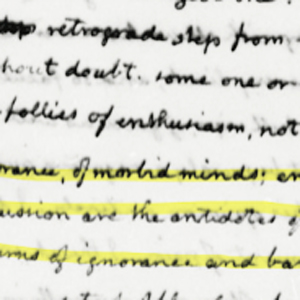 retrograde step from
hout doubt. some one or
follies of enthusiasm, not
rance, of morbid minds; en
ussion are the antidotes
of ignorance and ba